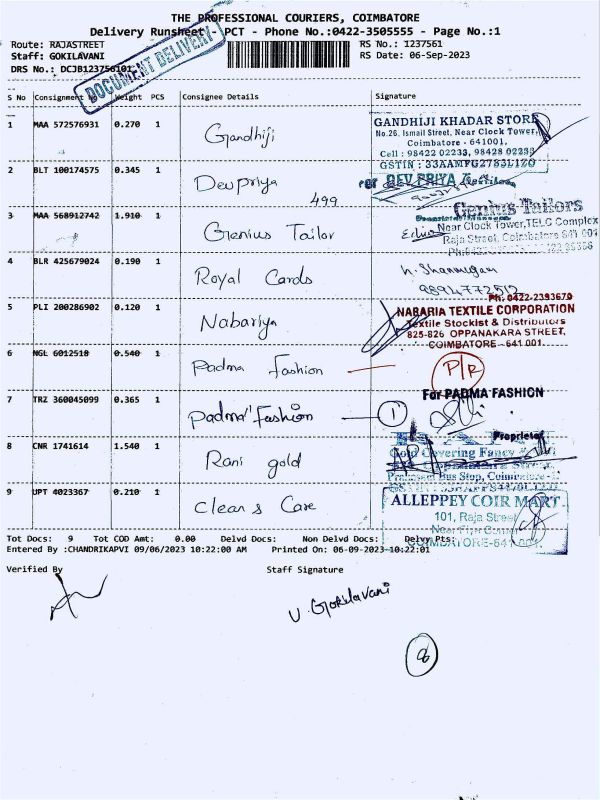 THE PROFESSIONAL COURIERS, COIMBATORE
Delivery Runsheet - PCT - Phone No.:0422-3505555 - Page No.:1
Route: RAJASTREET
Staff: GOKILAVANI
DRS No.: DCJB123756101
DOCUMENT DELIVERY
RS No.: 1237561
RS Date: 06-Sep-2023
S No Consignment Weight PCS Consignee Details Signature
1 MAA 572576931 0.270 1 Gandhiji
GANDHIJI KHADAR STORE
No.26, Ismail Street, Near Clock Tower,
Coimbatore - 641001.
Cell : 98422 02233, 98428 02233
GSTIN : 33AAMPG2783L1Z0
2 BLT 100174575 0.345 1 Devpriya 499
For DEV PRIYA Textiles
3 MAA 568912742 1.910 1 Genius Tailor
Genius Tailors
Near Clock Tower, TELC Complex
Raja Street, Coimbatore 641 001
4 BLR 425679024 0.190 1 Royal Cards
h. Shanmugam
9894772512
5 PLI 200286902 0.120 1 Nabariya
Ph: 0422-2393670
NABARIA TEXTILE CORPORATION
Textile Stockist & Distributors
825-826 OPPANAKARA STREET,
COIMBATORE - 641 001.
6 NGL 6012518 0.540 1 Padma Fashion
P/R
7 TRZ 360045099 0.365 1 Padma Fashion 1
For PADMA FASHION
Proprietor
8 CNR 1741614 1.540 1 Rani gold
Gold Covering Fancy
Bus Stop, Coimbatore-1
9 UPT 4023367 0.210 1 Clean & Care
ALLEPPEY COIR MART
101, Raja Street
Near Five Corner
COIMBATORE-641 001.
Tot Docs: 9 Tot COD Amt: 0.00 Delvd Docs: Non Delvd Docs: Delvy Pts:
Entered By :CHANDRIKAPVI 09/06/2023 10:22:00 AM Printed On: 06-09-2023-10:22:01
Verified By Staff Signature
V. Gokilavani
8